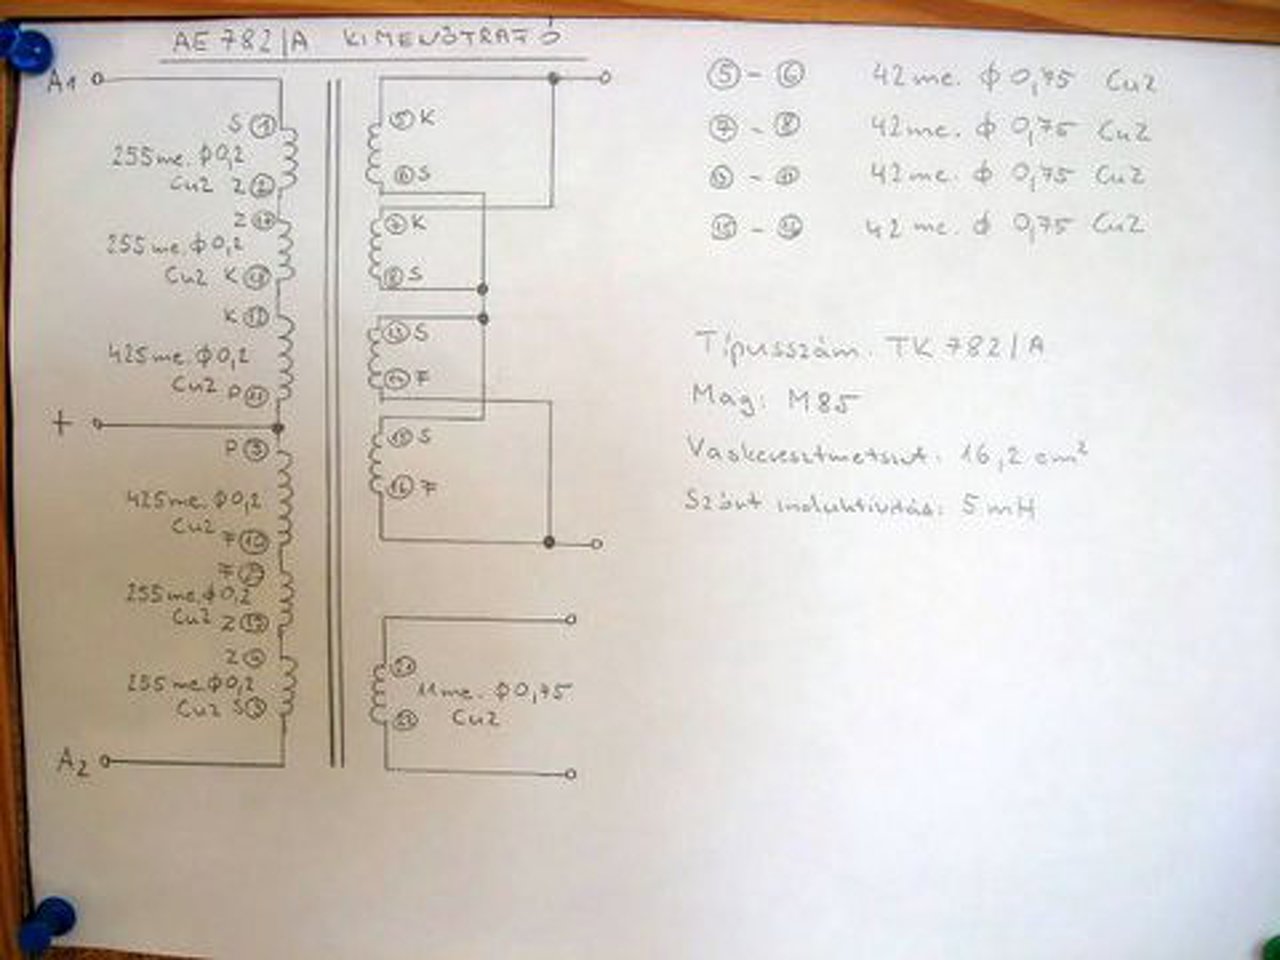 AE 782/A KIMENŐTRAFÓ
A1
S 1
255 me. ϕ0,2
CuZ Z 2
Z
255 me. ϕ0,2
CuZ K
K
425 me. ϕ0,2
CuZ P
+
P
425 me. ϕ0,2
CuZ F 10
F
255 me. ϕ0,2
CuZ Z
Z
255 me. ϕ0,2
CuZ S
A2
5 K
6 S
7 K
8 S
13 S
14 F
15 S
16 F
11 me. ϕ0,75
CuZ
5 - 6 42 me. ϕ 0,75 CuZ
7 - 8 42 me. ϕ 0,75 CuZ
42 me. ϕ 0,75 CuZ
42 me. ϕ 0,75 CuZ
Típusszám. TK 782/A
Mag: M85
Vaskeresztmetszet: 16,2 cm²
Szórt induktivitás: 5 mH